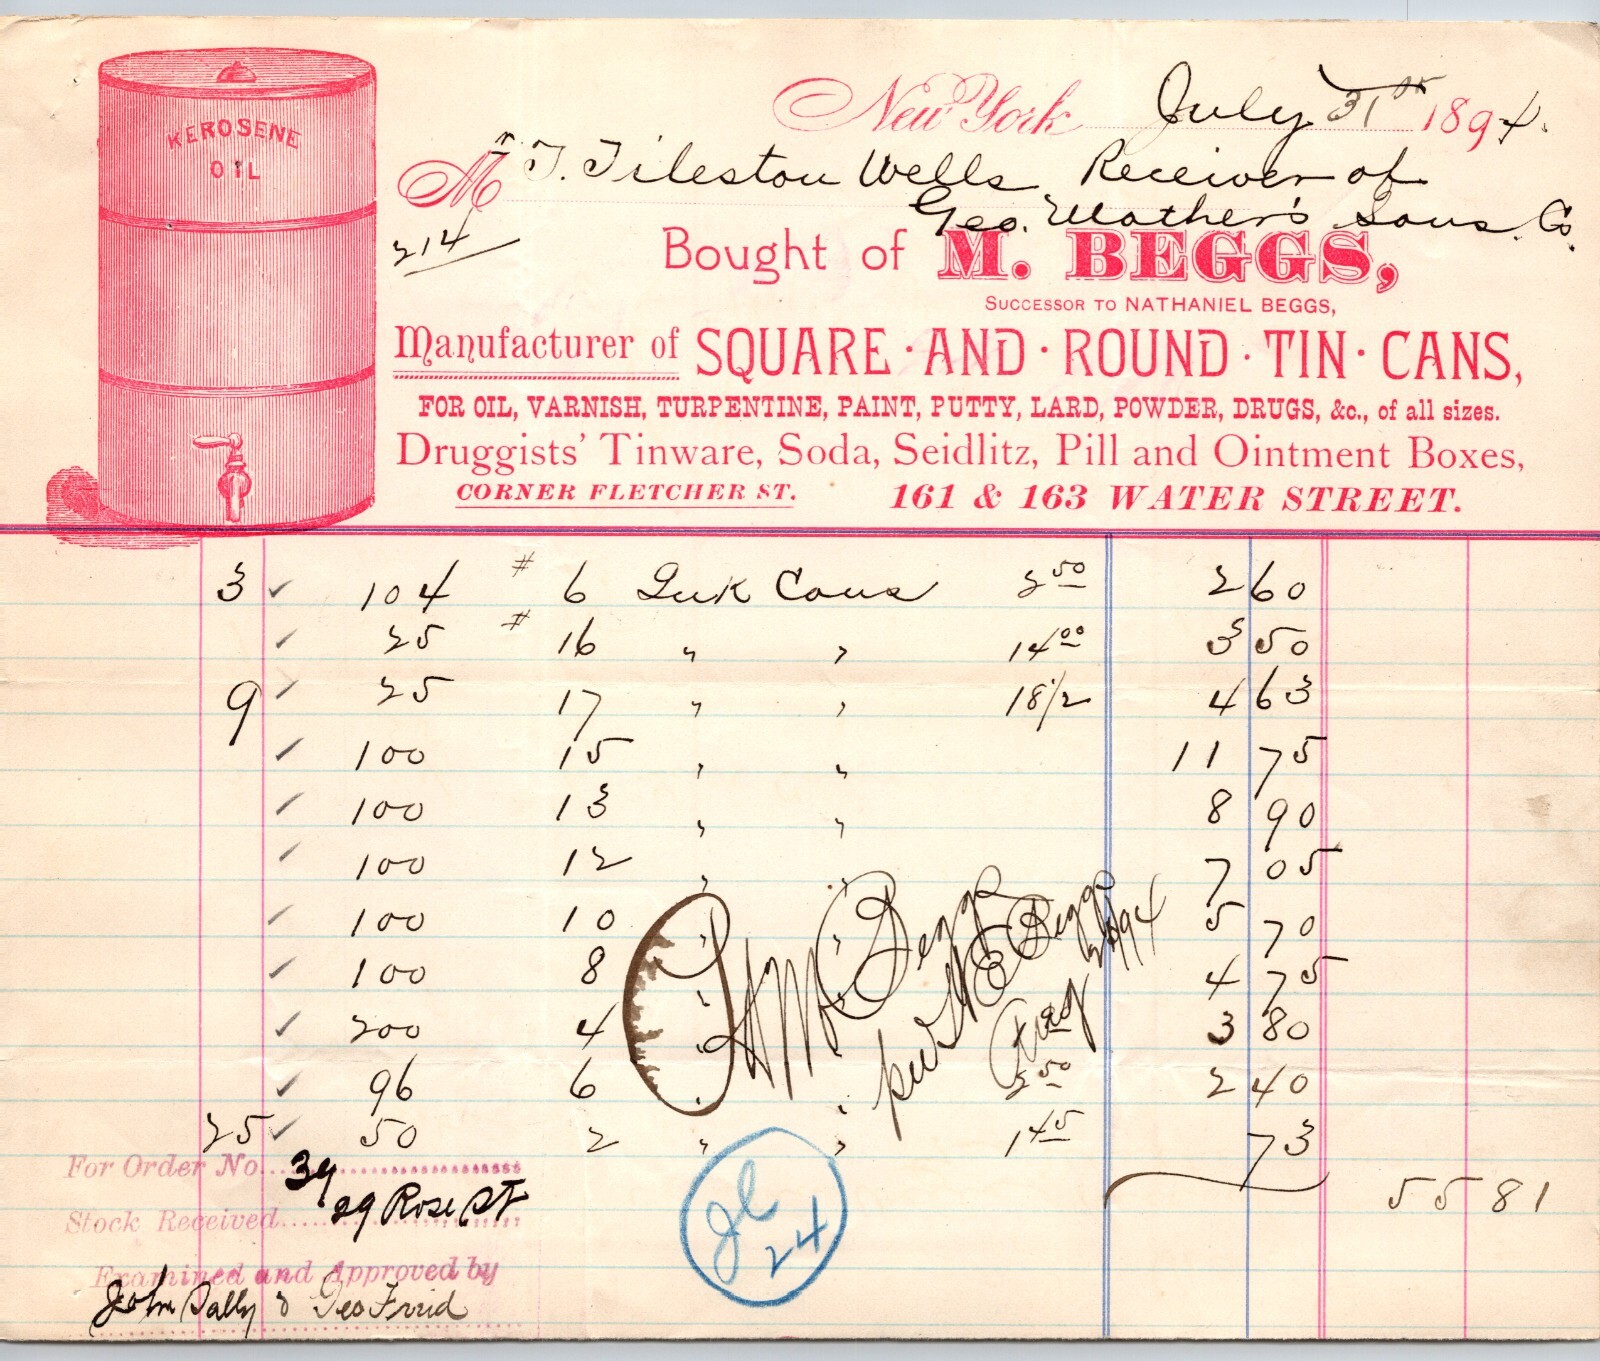 KEROSENE
OIL
New York July 31st 1894.
Mr T. Tileston Wells Receiver of
Geo. Mather's Sons Co.
214
Bought of M. BEGGS,
SUCCESSOR TO NATHANIEL BEGGS,
Manufacturer of SQUARE · AND · ROUND · TIN · CANS,
FOR OIL, VARNISH, TURPENTINE, PAINT, PUTTY, LARD, POWDER, DRUGS, &c., of all sizes.
Druggists' Tinware, Soda, Seidlitz, Pill and Ointment Boxes,
CORNER FLETCHER ST. 161 & 163 WATER STREET.
3 ✓ 104 # 6 Ink Cans 2 50 2 60
✓ 25 # 16 " " 14 00 3 50
9 ✓ 25 17 " " 18 1/2 4 63
✓ 100 15 " " 11 75
✓ 100 13 " " 8 90
✓ 100 12 " " 7 05
✓ 100 10 " " 5 70
✓ 100 8 " " 4 75
✓ 200 4 " " 3 80
✓ 96 6 " " 2 50 2 40
25 ✓ 50 2 " " 1 45 73
55 81
M. Beggs
per N E Beggs
Aug 94
For Order No. 39
Stock Received 29 Rose St
Examined and Approved by
John Dally & Geo
24